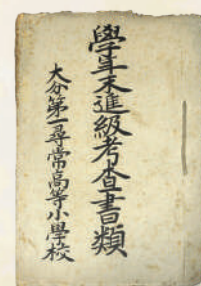 學年末進級考査書類
大分第一尋常高等小學校